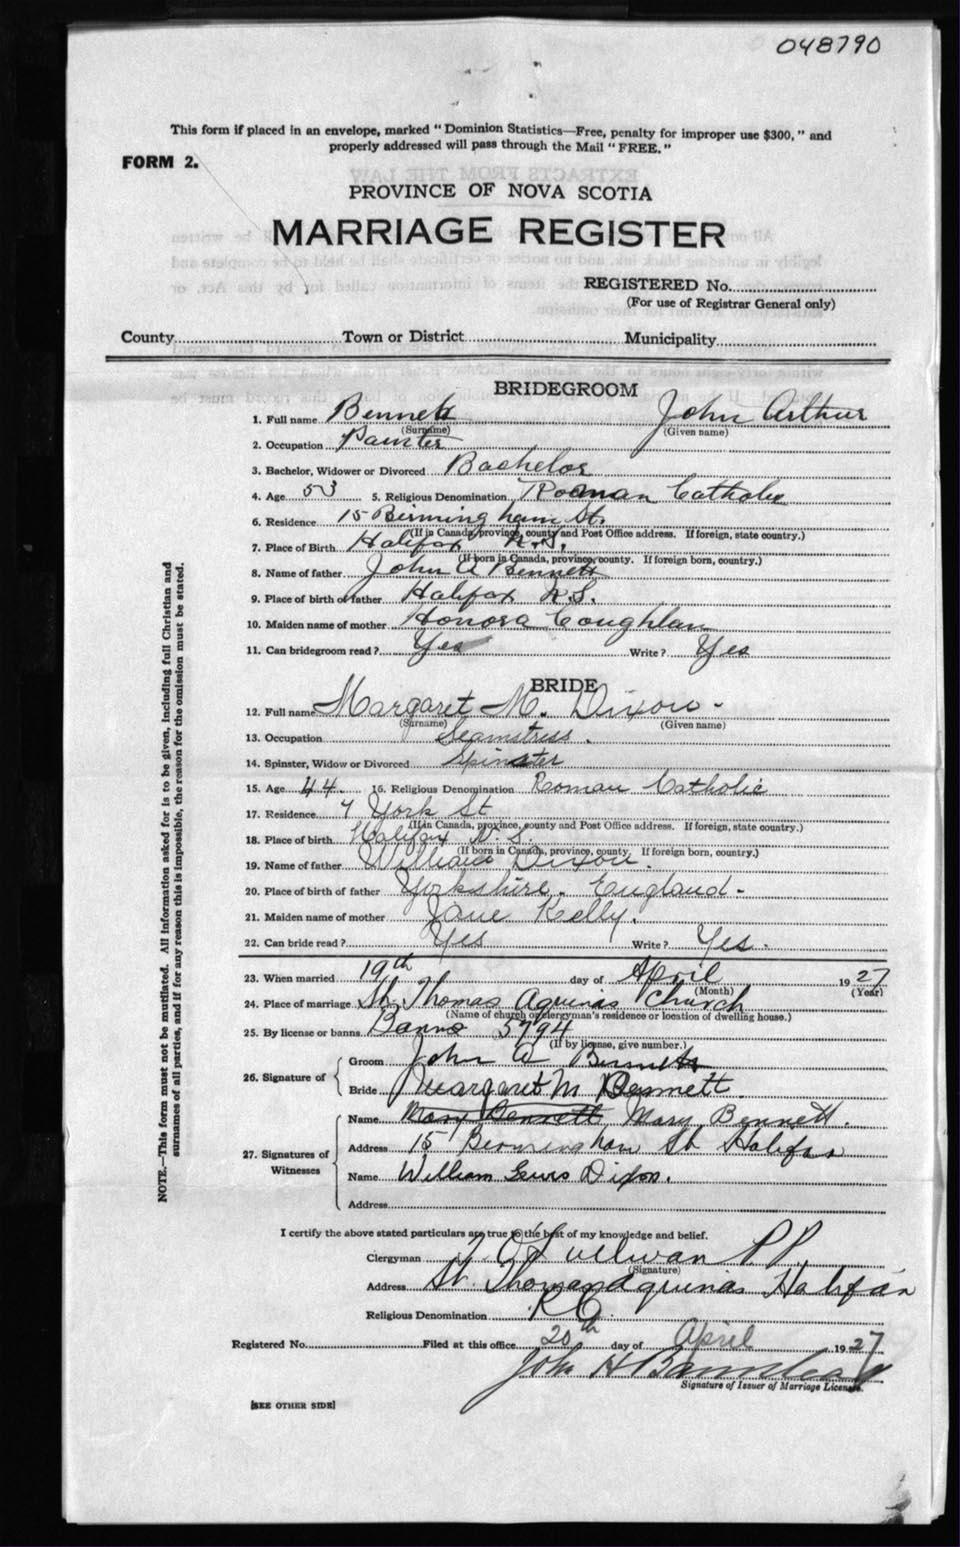 048790
This form if placed in an envelope, marked "Dominion Statistics—Free, penalty for improper use $300," and
properly addressed will pass through the Mail "FREE."
FORM 2.
PROVINCE OF NOVA SCOTIA
MARRIAGE REGISTER
REGISTERED No.
(For use of Registrar General only)
County Town or District Municipality
BRIDEGROOM
1. Full name Bennett John Arthur
(Surname) (Given name)
2. Occupation Painter
3. Bachelor, Widower or Divorced Bachelor
4. Age 53 5. Religious Denomination Roman Catholic
6. Residence 15 Birmingham St.
(If in Canada, province, county and Post Office address. If foreign, state country.)
7. Place of Birth Halifax N.S.
(If born in Canada, province, county. If foreign born, country.)
8. Name of father John A Bennett
9. Place of birth of father Halifax N.S.
10. Maiden name of mother Honora Coughlan
11. Can bridegroom read? Yes Write? Yes
BRIDE
12. Full name Margaret M. Dixon -
(Surname) (Given name)
13. Occupation Seamstress.
14. Spinster, Widow or Divorced Spinster
15. Age 44. 16. Religious Denomination Roman Catholic
17. Residence 7 York St
(If in Canada, province, county and Post Office address. If foreign, state country.)
18. Place of birth Halifax N.S.
(If born in Canada, province, county. If foreign born, country.)
19. Name of father William Dixon.
20. Place of birth of father Yorkshire. England -
21. Maiden name of mother Jane Kelly.
22. Can bride read? Yes Write? Yes.
23. When married 19th day of April 1927
(Month) (Year)
24. Place of marriage St. Thomas Aquinas Church
(Name of church or clergyman's residence or location of dwelling house.)
25. By license or banns Banns 5794
(If by license, give number.)
26. Signature of Groom John A Bennett
Bride Margaret M Bennett.
27. Signatures of Witnesses Name Mary Bennett Mary Bennett.
Address 15 Birmingham St Halifax
Name William Dixon.
Address
I certify the above stated particulars are true to the best of my knowledge and belief.
Clergyman O'Sullivan P.P.
(Signature)
Address St. Thomas Aquinas Halifax
Religious Denomination R.C.
Registered No. Filed at this office 20th day of April 1927
John H
Signature of Issuer of Marriage Licenses.
[SEE OTHER SIDE]
NOTE.—This form must not be mutilated. All information asked for is to be given, including full Christian and
surnames of all parties, and if for any reason this is impossible, the reason for the omission must be stated.